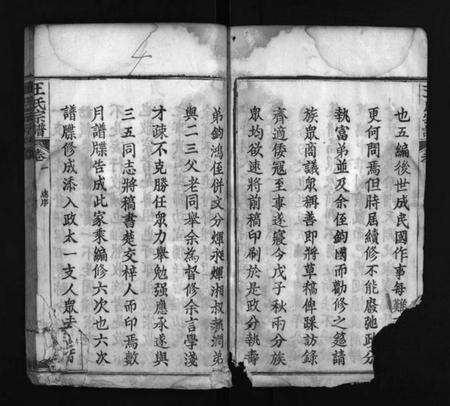 也五編後世成民國作事每難
更何問焉但時屆續修不能廢弛政分
執富弟並及余侄鈞國而勸修之筵請
族眾商議眾稱善即將草稿俾踩訪錄
齊適倭冠至事遂寢今戊子秋兩分族
眾均欲速將前稿印刷於是政分執壽
弟鈞鴻侄併政分煇永煇湘叔
弟
與二三父老同舉余為督修余言學淺
才疎不克勝任眾力舉勉強應承遂與
三五同志將稿書楚交梓人而印焉數
月譜牒告成此家乘編修六次也六次
譜牒修成添入政太一支人眾
王氏宗譜
卷
4